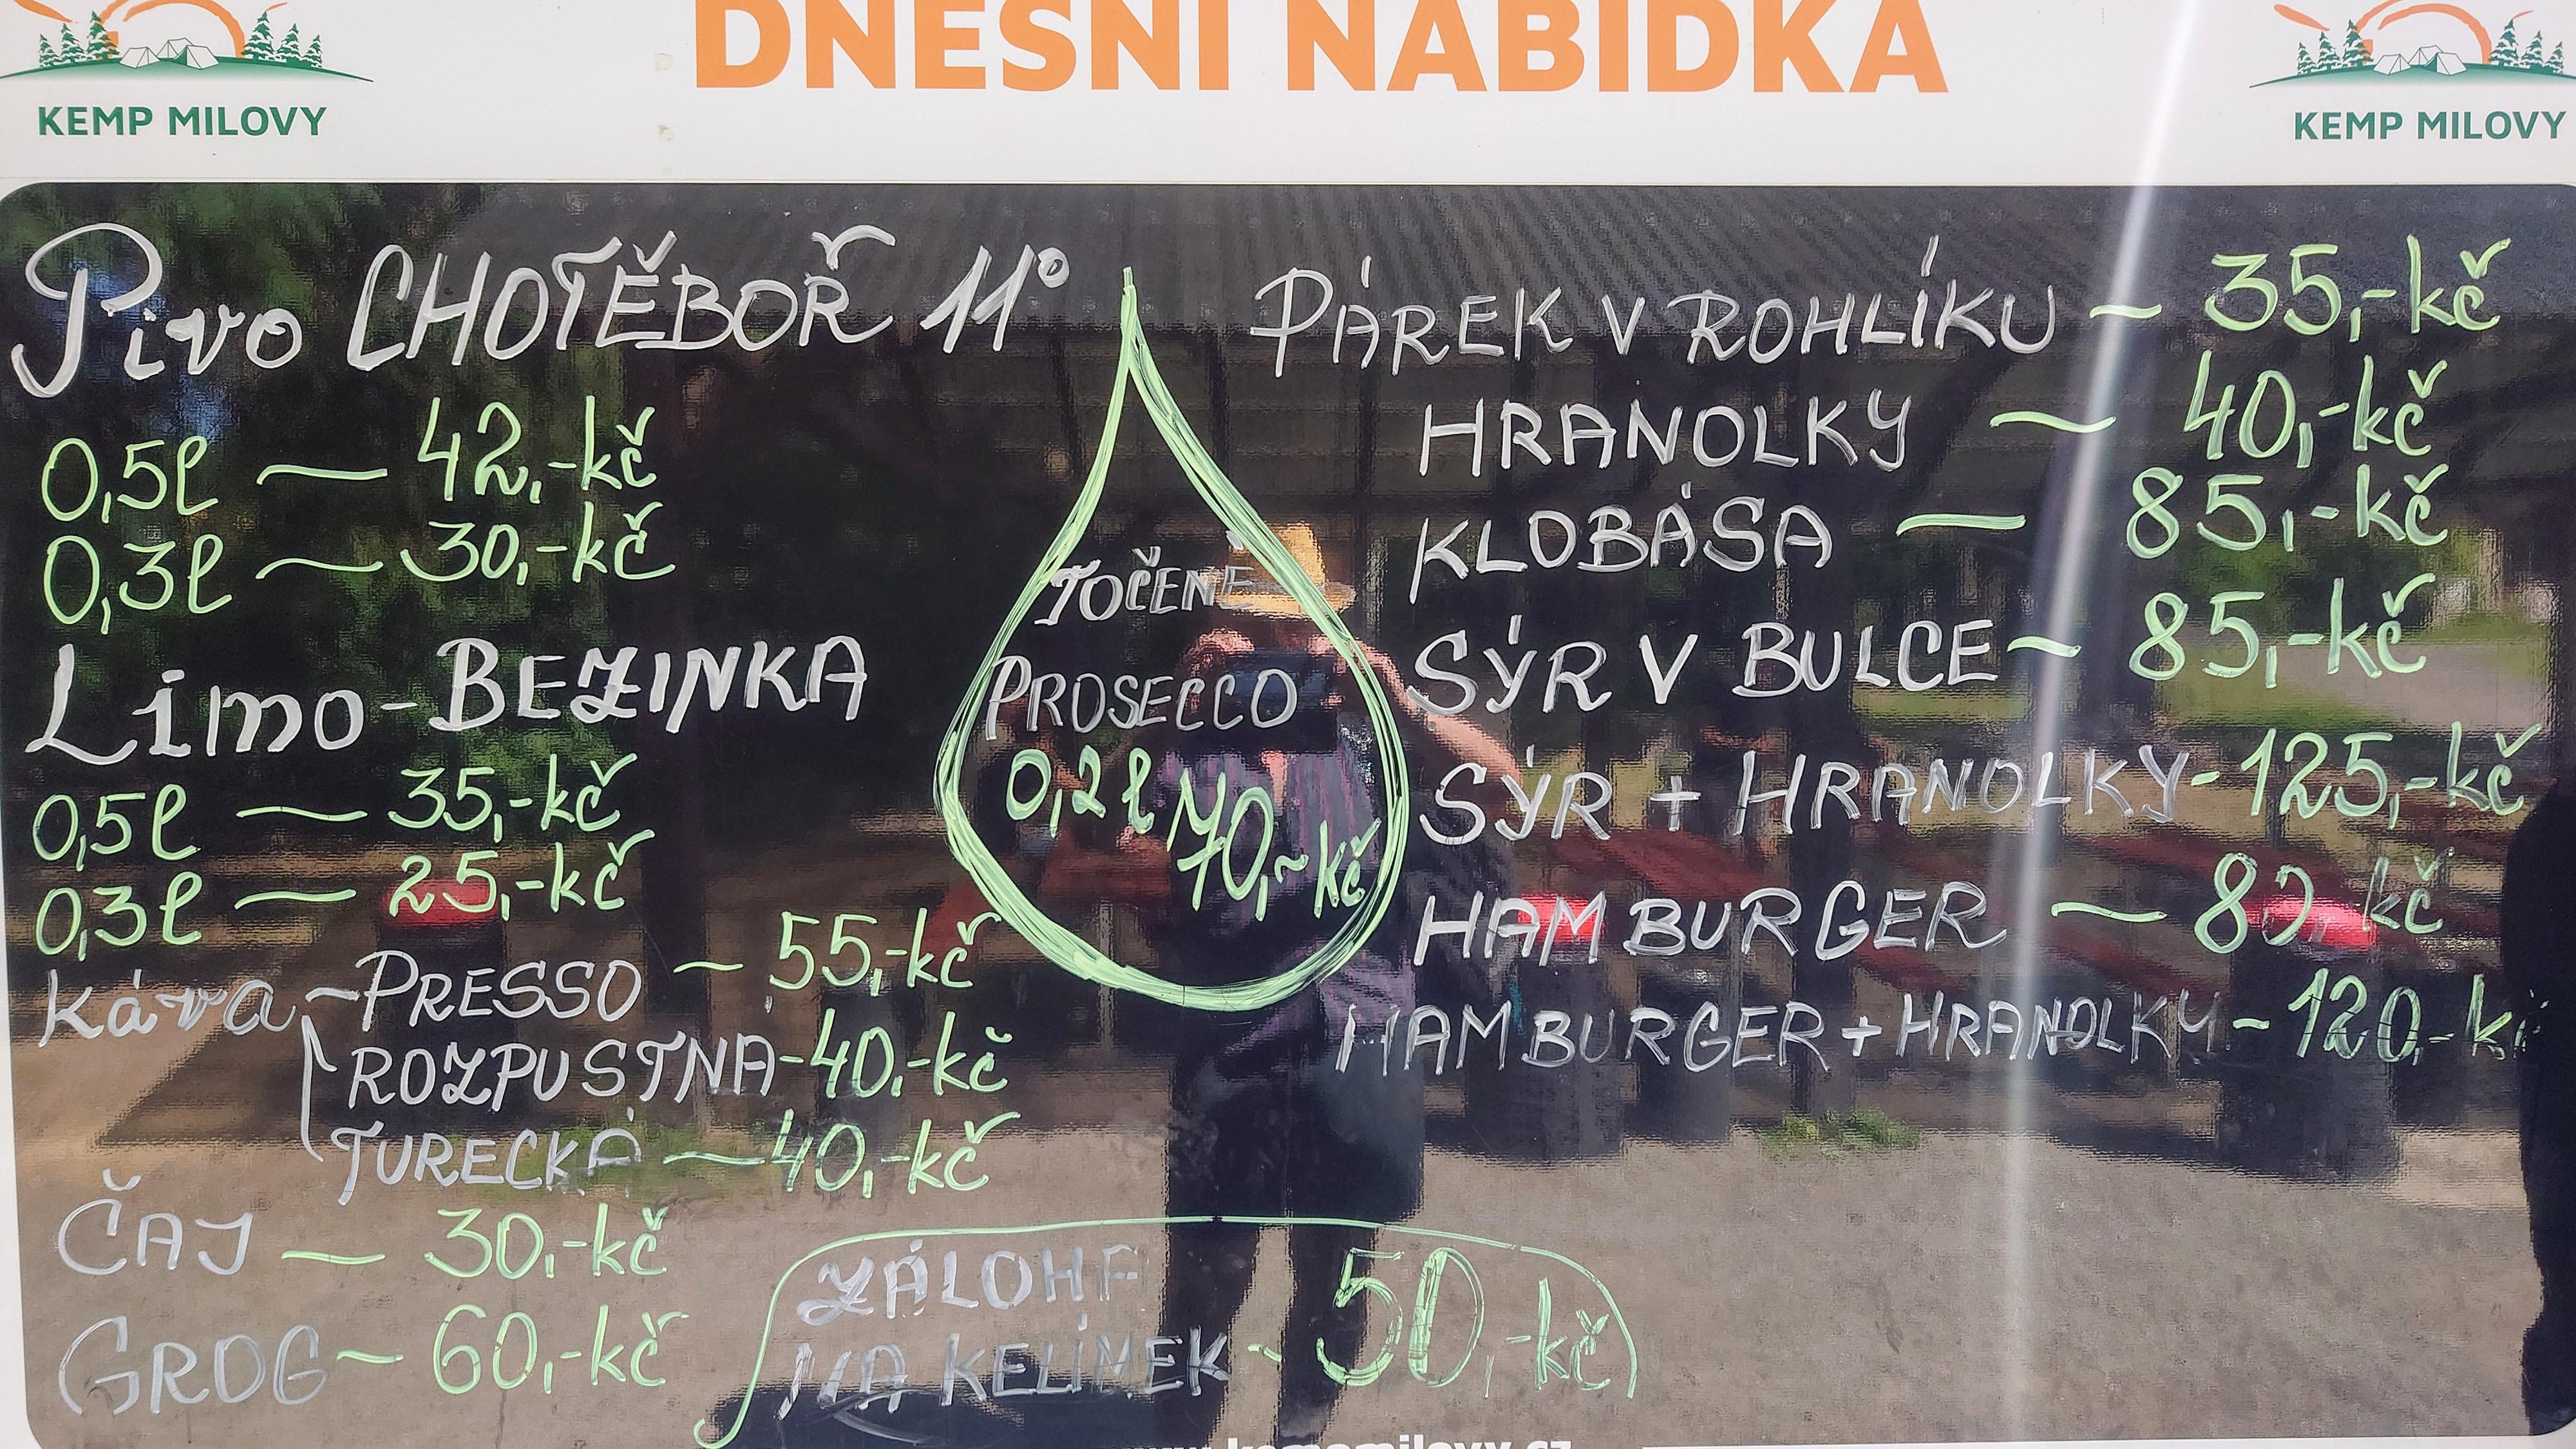 DNEŠNÍ NABÍDKA
KEMP MILOVY
KEMP MILOVY
Pivo CHOTĚBOŘ 11°
0,5l ~ 42,-kč
0,3l ~ 30,-kč
Limo - BEZINKA
0,5l ~ 35,-kč
0,3l ~ 25,-kč
Káva ~ PRESSO ~ 55,-kč
ROZPUSTNÁ - 40,-kč
TURECKÁ ~ 40,-kč
ČAJ ~ 30,-kč
GROG ~ 60,-kč
TOČENÉ
PROSECCO
0,2l 70,~kč
PÁREK V ROHLÍKU ~ 35,-kč
HRANOLKY ~ 40,-kč
KLOBÁSA ~ 85,-kč
SÝR V BULCE ~ 85,-kč
SÝR + HRANOLKY - 125,-kč
HAMBURGER ~ 80 kč
HAMBURGER + HRANOLKY - 120,-kč
ZÁLOHA
NA KELÍMEK ~ 50,-kč
www.kempmilovy.cz